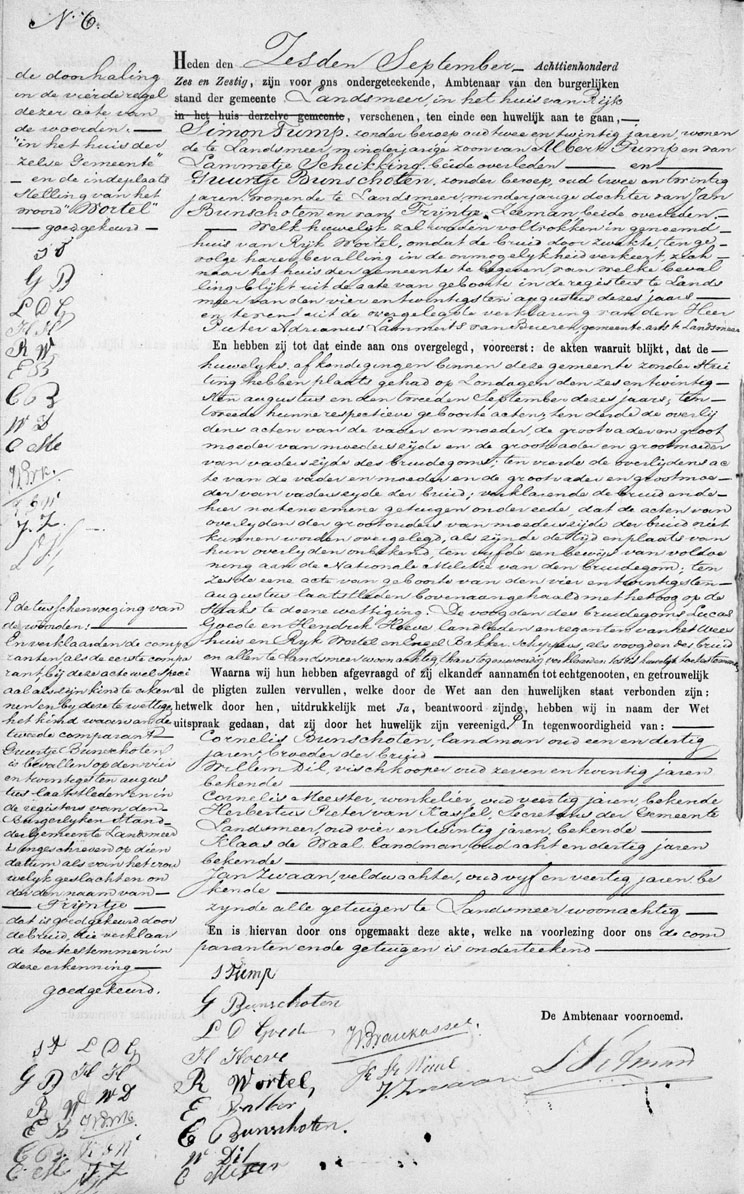 N.º 6.
Heden den Zesden September Achttienhonderd
Zes en Zestig, zijn voor ons ondergeteekende, Ambtenaar van den burgerlijken
stand der gemeente Landsmeer, in het huis van Rijk
in het huis derzelve gemeente, verschenen, ten einde een huwelijk aan te gaan,
Simon Tump, zonder beroep oud twee en twintig jaren, wonen
de te Landsmeer minderjarige zoon van Albert Tump en van
Lammetje Schukking, beide overleden en
Guurtje Bunschoten, zonder beroep, oud twee en twintig
jaren, wonende te Landsmeer, minderjarige dochter van Jan
Bunschoten en van Trijntje Leeman beide overleden.
Welk huwelijk zal worden voltrokken in genoemd
huis van Rijk Wortel, omdat de bruid door zwakte, ten ge
volge harer bevalling in de onmogelijkheid verkeert, zich
naar het huis der gemeente te begeven van welke beval
ling blijkt uit de acte van geboorte in de registers te Lands
meer van den vier en twintigsten augustus dezes jaars
en tevens uit de overgelegde verklaring van den Heer
Pieter Adrianus Lammerts van Bueren, gemeente arts te Landsmeer
En hebben zij tot dat einde aan ons overgelegd, vooreerst: de akten waaruit blijkt, dat de
huwelijks afkondigingen binnen deze gemeente zonder stui
ting hebben plaats gehad op Zondagen den zes en twintig
sten augustus en den tweeden September dezes jaars; ten
tweede hunne respectieve geboorte acten; ten derde de overlij
dens acten van de vader en moeder, de grootvader en groot
moeder van moederszijde en de grootvader en grootmoeder
van vaderszijde des bruidegoms; ten vierde de overlijdens ac
te van de vader en moeder en de grootvader en grootmoe
der van vaderszijde der bruid; verklarende de bruid en de
hier natenoemene getuigen onder eede, dat de acten van
overlijden der grootouders van moederszijde der bruid niet
kunnen worden overgelegd, als zijnde de tijd en plaats van
hun overlyden onbekend, ten vyfde een bewijs van voldoe
ning aan de Nationale Militie van den bruidegom; ten
zesde eene acte van geboorte van den vier en twintigsten
augustus laatstleden bovenaangehaald met het oog op de
straks te doene wettiging. De voogden des bruidegoms Lucas
Goede en Hendrik Hoeve landlieden en regenten van het Wees
huis en Rijk Wortel en Engel Bakker, schippers, als voogden der bruid
en allen te Landsmeer woonachtig thans tegenwoordig verklaarden tot dit huwelijk toe te stemmen
Waarna wij hun hebben afgevraagd of zij elkander aannamen tot echtgenooten, en getrouwelijk
al de pligten zullen vervullen, welke door de Wet aan den huwelijken staat verbonden zijn:
hetwelk door hen, uitdrukkelijk met Ja, beantwoord zijnde, hebben wij in naam der Wet
uitspraak gedaan, dat zij door het huwelijk zijn vereenigd. In tegenwoordigheid van:
Cornelis Bunschoten, landman oud een en dertig
jaren, broeder der bruid
Willem Dil, vischkooper oud zeven en twintig jaren
bekende
Cornelis Meester, winkelier, oud veertig jaren, bekende
Herbertus Pieter van Kassel, Secretaris der Gemeente
Landsmeer, oud vier en twintig jaren, bekende
Klaas de Waal landman, oud acht en dertig jaren
bekende
Jan Zwaan, veldwachter, oud vyf en veertig jaren, be
kende
zynde alle getuigen te Landsmeer woonachtig
En is hiervan door ons opgemaakt deze akte, welke na voorlezing door ons de com
paranten en de getuigen is onderteekend
S Tump
G Bunschoten
L D Goede
H Hoeve
R Wortel
E Bakker
C Bunschoten.
W Dil
C Meester
K de Waal
J Zwaan
De Ambtenaar voornoemd.
de doorhaling
in de vierde regel
dezer acte van
de woorden:
"in het huis der
zelve Gemeente"
en de indeplaats
stelling van het
woord "Wortel"
goedgekeurd
S T
G B
L D G
H H
R W
E B
C B
W D
C Me
J. Z.
de tusschenvoeging van
de woorden:
En verklaarden de compa
ranten als de eerste compa
rant bij deze acte wel speci
aal als zijn kind te erken
nen en by deze te wettigen
het kind waarvan de
tweede comparant
Guurtje Bunschoten
is bevallen op den vier
en twintigsten augus
tus laatstleden en in
de registers van den
Burgerlyken Stand
der Gemeente Landsmeer
ingeschreven op dien
datum als van het vrou
welyk geslacht en on
der den naam van
Trijntje
dat is goedgekeurd door
de bruid, die verklaar
de toe te stemmen in
deze erkenning
goedgekeurd.
S T L D G
G B H H
R W W D
E B
C B
C M J Z